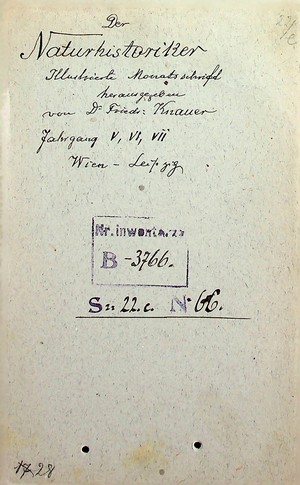 Der
Naturhistoriker
Illustrierte Monatsschrift
herausgegeben
von Dr Friedr: Knauer
Jahrgang V, VI, VII
Wien - Leipzig
Nr. inwentarza
B -3766.
S= 22.c. N 66.
28